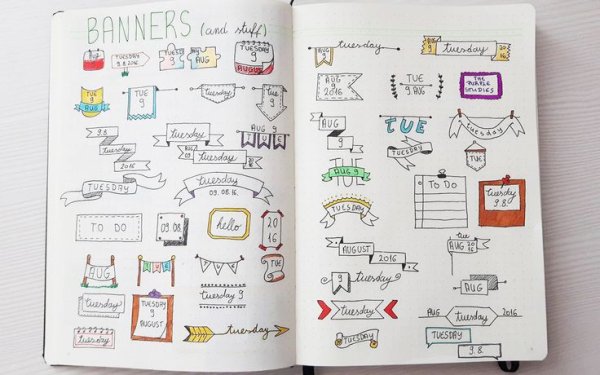 BANNERS (and stuff)
TUESDAY
9.8.2016
TUESDAY
9
MY
AUG
TUESDAY
9
AUGUST
tuesday
TUE
9
AUG
TUE
9
tuesday
TUE
9
9.8.
TUESDAY
2016
tuesday
AUG
9
tuesday
AUG 9
TUE
TUESDAY
tuesday
09.08.16.
TO DO
09.08.
hello
20
16
AUG
TUE
TUE
tuesday
TUESDAY
9
AUGUST
tuesday 9
tuesday
tuesday
9
tuesday
TUE
9
tuesday
AUG
9
2016
TUE
9 AUG
THE
PURPLE
STUDIES
AUG
9
TUE
tuesday
TUESDAY
TUE
TUE
AUG 9
TO DO
tuesday
9.8.
TUESDAY
AUGUST
2016
tue
AUG 20
16
9
tuesday
AUG
tuesday
AUG
tuesday
2016
TUESDAY
TUESDAY
9.8.